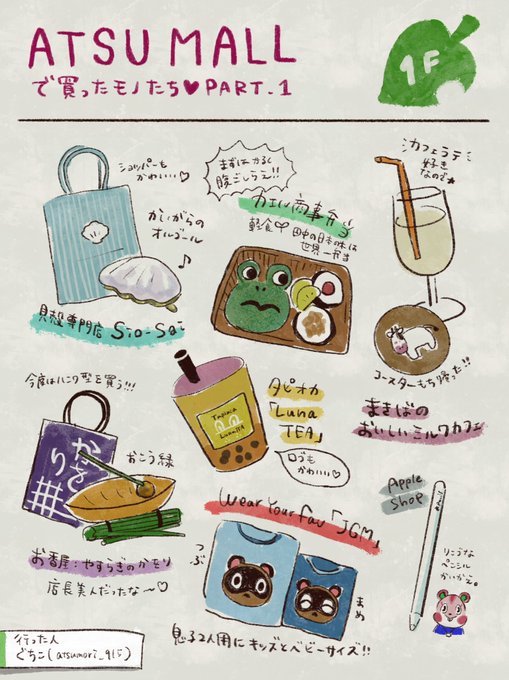 ATSU MALL
で買ったモノたち♥PART.1
1F
ショッパーも
かわいい♡
かいがらの
オルゴール
♪
貝殻専門店 Sio-Sai
まずはかるく
腹ごしらえ!!
カエル商事弁当
軽食♡
田中の日本の味は
世界一弁当
カフェラテ
好き
なので★
コースターもち帰った!!
まきばの
おいしいミルクカフェ
今度はハニワ型を買う!!!
おこう緑
お香屋:やすらぎのかをり
店長美人だったな〜♡
Tapioca
LunaTEA
タピオカ
「Luna
TEA」
ロゴも
かわいい♡
Wear Your Fav「JGM」
つぶ
まめ
息子2人用にキッズとベビーサイズ!!
Apple
Shop
りこうな
ペンシル
かいがえ。
行った人
ぐちこ(atsumori_915)